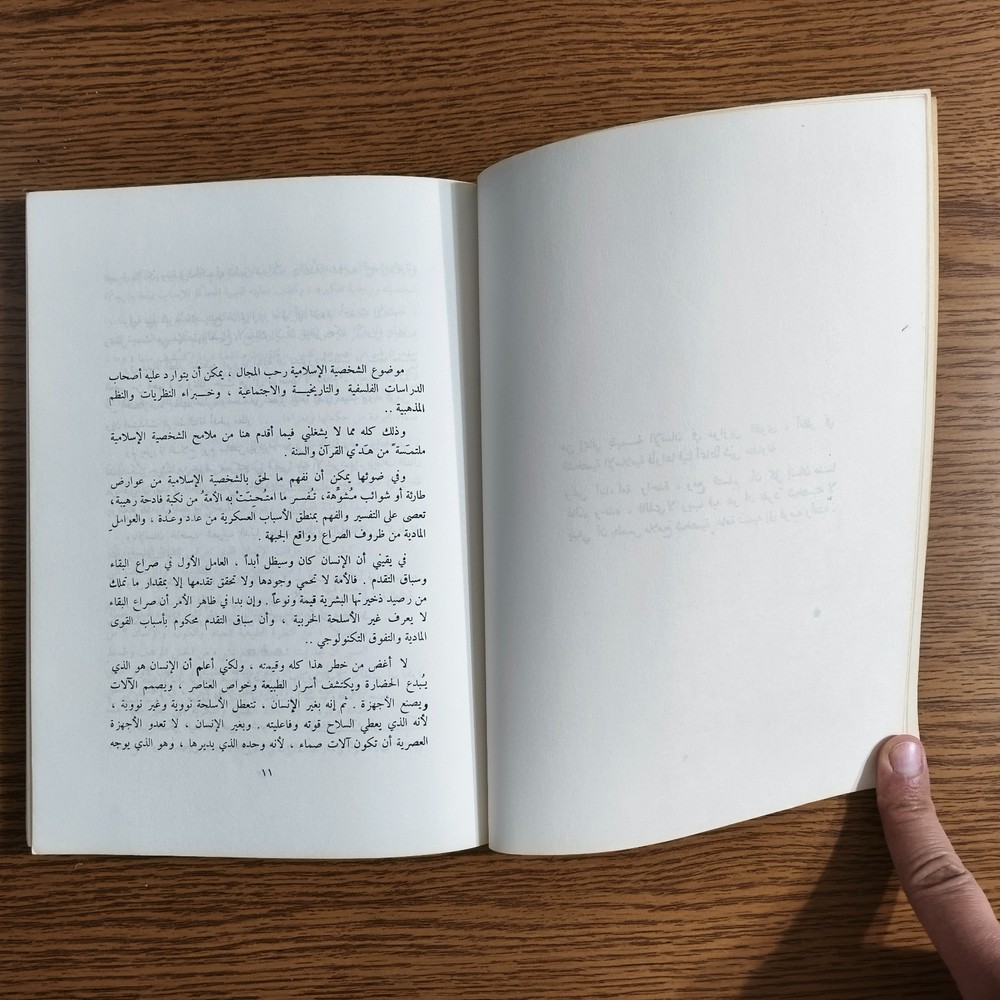 موضوع الشخصية الإسلامية رحب المجال ، يمكن أن يتوارد عليه أصحاب
الدراسات الفلسفية والتاريخيـــة والاجتماعية ، وخـــبراء النظريات والنظم
المذهبية ..
وذلك كله مما لا يشغلني فيما أقدم هنا من ملامح الشخصية الإسلامية
ملتمَسةً من هَدْي القرآن والسنة .
وفي ضوئها يمكن أن نفهم ما لحق بالشخصية الإسلامية من عوارض
طارئة أو شوائب مُشوِّهة، تُفسر ما امتُحِنَتْ به الأمة من نكبة فادحة رهيبة،
تعصى على التفسير والفهم بمنطق الأسباب العسكرية من عَدد وعُدة ، والعوامل
المادية من ظروف الصراع وواقع الجبهة .
في يقيني أن الإنسان كان وسيظل أبداً ، العامل الأول في صراع البقاء
وسباق التقدم . فالأمة لا تحمي وجودها ولا تحقق تقدمها إلا بمقدار ما تملك
من رصيد ذخيرتها البشرية قيمة ونوعاً . وإن بدا في ظاهر الأمر أن صراع البقاء
لا يعرف غير الأسلحة الحربية ، وأن سباق التقدم محكوم بأسباب القوى
المادية والتفوق التكنولوجي ..
لا أغض من خطر هذا كله وقيمته ، ولكني أعلم أن الإنسان هو الذي
يُبدع الحضارة ويكتشف أسرار الطبيعة وخواص العناصر ، ويصمم الآلات
ويصنع الأجهزة . ثم إنه بغير الإنسان ، تتعطل الأسلحة نووية وغير نووية ،
لأنه الذي يعطي السلاح قوته وفاعليته . وبغير الإنسان ، لا تعدو الأجهزة
العصرية أن تكون آلات صماء ، لأنه وحده الذي يديرها ، وهو الذي يوجه
١١